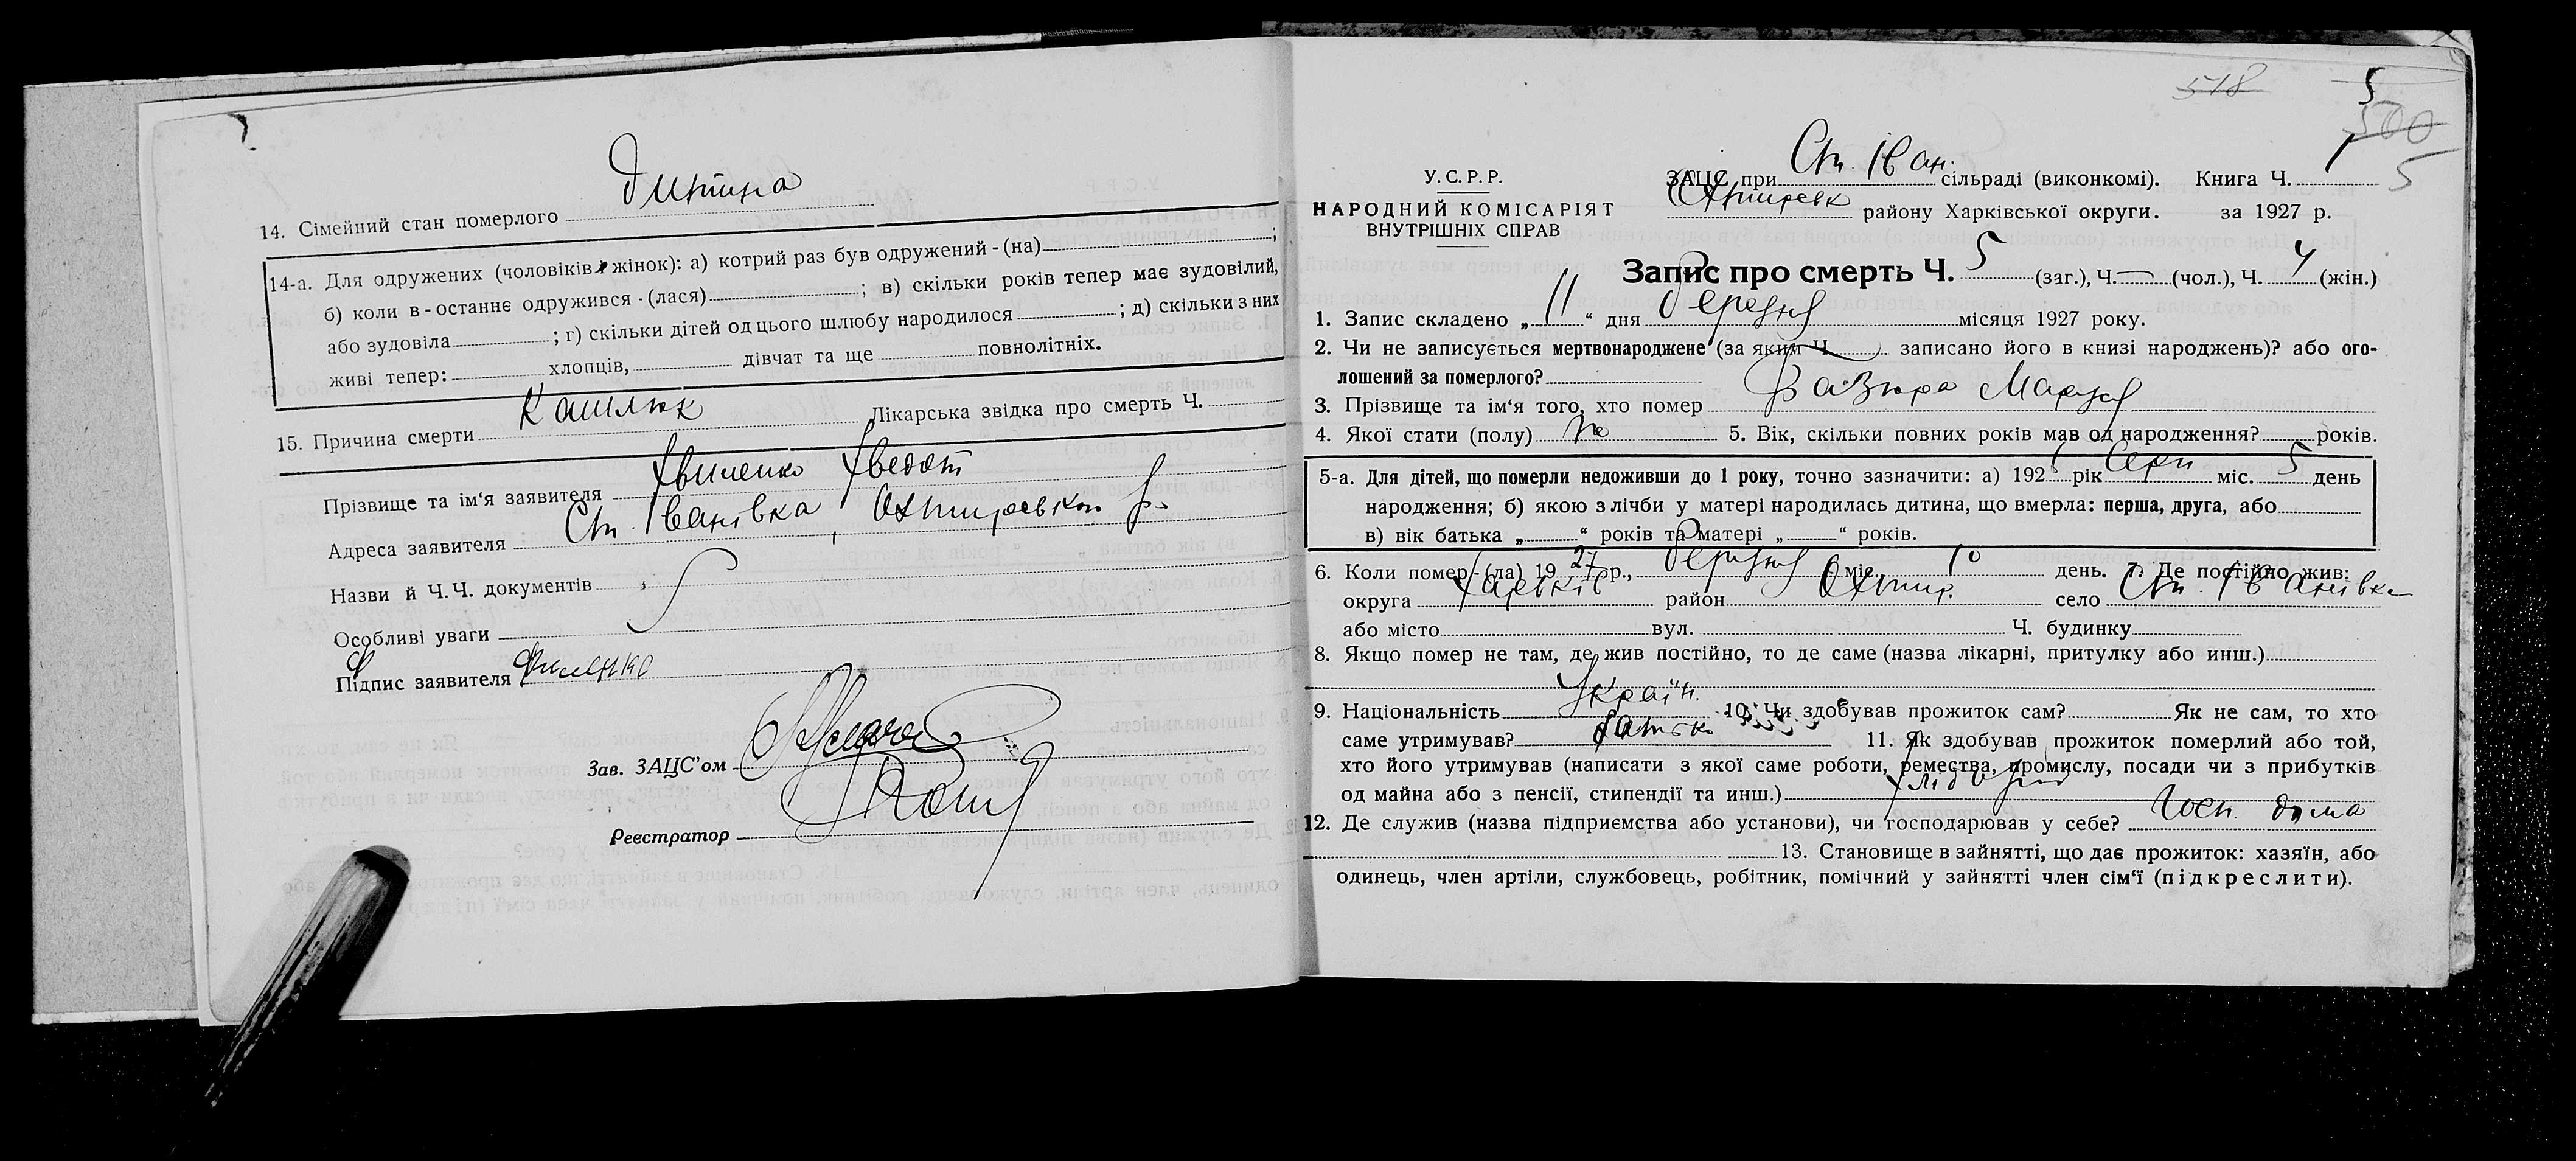 дитина
14. Сімейний стан померлого
14-а. Для одружених (чоловіків і жінок): а) котрий раз був одружений - (на) ;
б) коли в - останнє одружився - (лася) ; в) скільки років тепер має зудовілий,
або зудовіла ; г) скільки дітей од цього шлюбу народилося ; д) скільки з них
живі тепер: хлопців, дівчат та ще повнолітніх.
15. Причина смерти Кашлюк Лікарська звідка про смерть Ч.
Прізвище та ім'я заявителя
Адреса заявителя Ст. Іванівка, Охтирсвкої р.
Назви й Ч.Ч. документів
Особливі уваги
Підпис заявителя
Зав. ЗАЦС'ом
Реестратор
518
5
500
5
У.С.Р.Р.
НАРОДНИЙ КОМІСАРІЯТ
ВНУТРІШНІХ СПРАВ
ЗАЦС при Ст. Іван. сільраді (виконкомі). Книга Ч. 1
Охтирськ району Харківської округи. за 1927 р.
Запис про смерть Ч. 5 (заг.), Ч. — (чол.), Ч. 4 (жін.)
1. Запис складено „ 11 “ дня березня місяця 1927 року.
2. Чи не записується мертвонароджене (за яким Ч. записано його в книзі народжень)? або ого-
лошений за померлого?
3. Прізвище та ім'я того, хто помер Мария
4. Якої стати (полу) 5. Вік, скільки повних років мав од народження? років.
5-а. Для дітей, що померли недоживши до 1 року, точно зазначити: а) 1926 рік Серп міс. 5 день
народження; б) якою з лічби у матері народилась дитина, що вмерла: перша, друга, або
в) вік батька „ “ років та матері „ “ років.
6. Коли помер - (ла) 1927 р., березня міс. 10 день. 7. Де постійно жив:
округа Харьків район Охтир. село Ст. Іванівка
або місто вул. Ч. будинку
8. Якщо помер не там, де жив постійно, то де саме (назва лікарні, притулку або инш.)
9. Національність Україн. 10. Чи здобував прожиток сам? Як не сам, то хто
саме утримував? батько 11. Як здобував прожиток померлий або той,
хто його утримував (написати з якої саме роботи, ремества, промислу, посади чи з прибутків
од майна або з пенсії, стипендії та инш.) хлібороб
12. Де служив (назва підприємства або установи), чи господарював у себе? Госп. дома
13. Становище в зайнятті, що дає прожиток: хазяїн, або
одинець, член артіли, службовець, робітник, помічний у зайнятті член сім'ї (підкреслити).